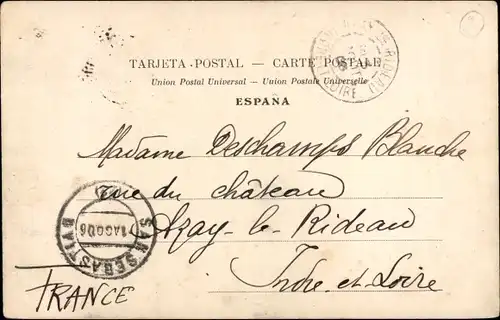 TARJETA POSTAL — CARTE POSTALE
Union Postal Universal — Union Postale Universelle
ESPAÑA
Madame Deschamps Blanche
rue du château
Azay-le-Rideau
Indre et Loire
FRANCE
SAN SEBASTIAN
1 AGO 06
RIDEAU
LOIRE